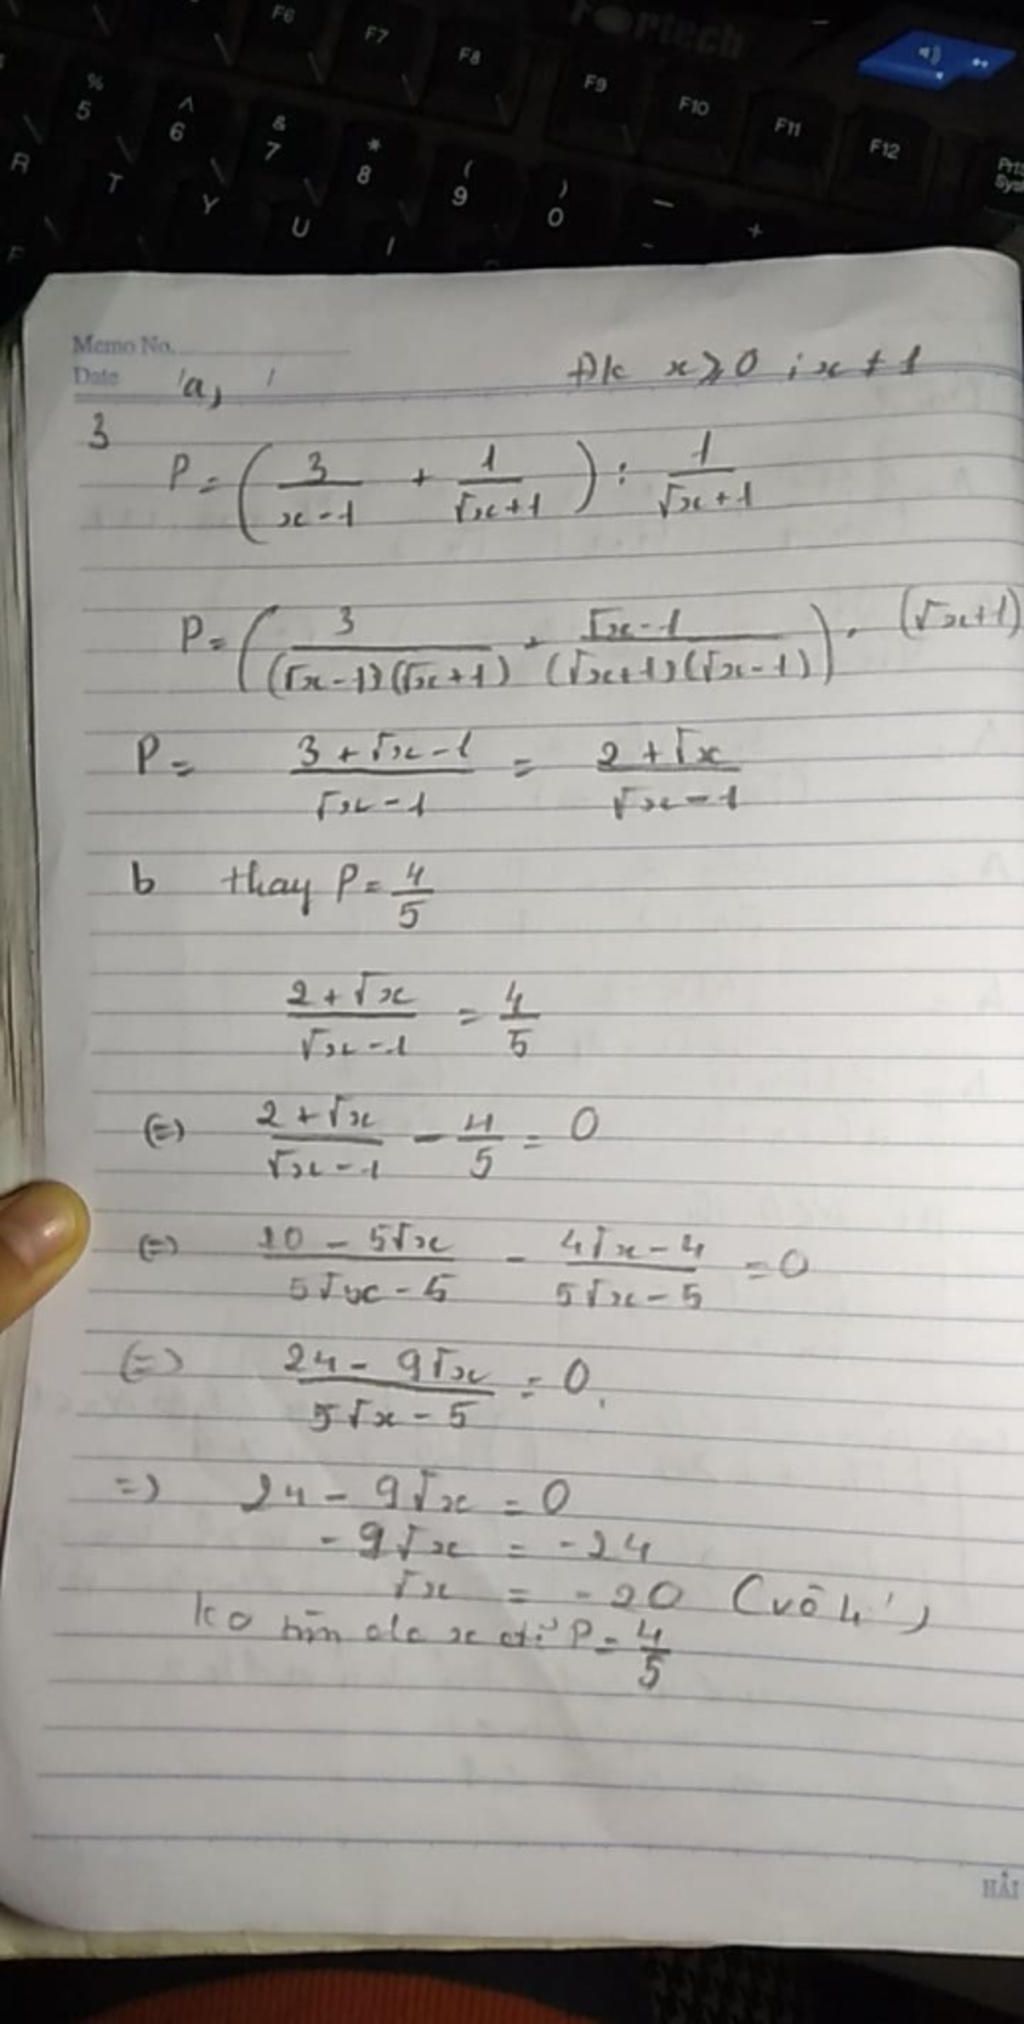 F6 F7 F8 F9 F10 F11 F12
Fortech
% 5 ^ 6 & 7 * 8 ( 9 ) 0 — - +
R T Y U I
Memo No.
Date a,
Đk x ⩾ 0 ; x ≠ 1
3
P = ( 3/(x - 1) + 1/(√x + 1) ) : 1/(√x + 1)
P = ( 3/((√x - 1)(√x + 1)) + (√x - 1)/((√x + 1)(√x - 1)) ) . (√x + 1)
P = (3 + √x - 1)/(√x - 1) = (2 + √x)/(√x - 1)
b thay P = 4/5
(2 + √x)/(√x - 1) = 4/5
(=) (2 + √x)/(√x - 1) - 4/5 = 0
(=) (10 - 5√x)/(5√x - 5) - (4√x - 4)/(5√x - 5) = 0
(=) (24 - 9√x)/(5√x - 5) = 0
=) 24 - 9√x = 0
- 9√x = - 24
√x = - 20 (vô lí)
ko tìm đc x để P = 4/5
HẢI